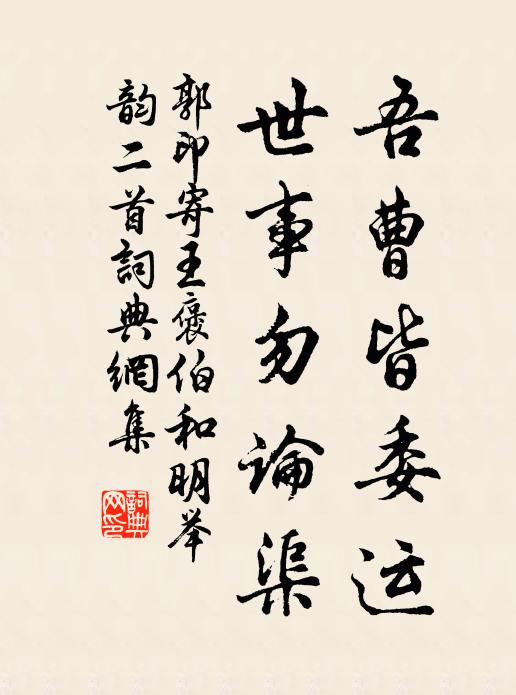 吾曹皆委运
世事勿論渠
郭印寄王褒伯和明举
韵二首詞典網集
詞典网印